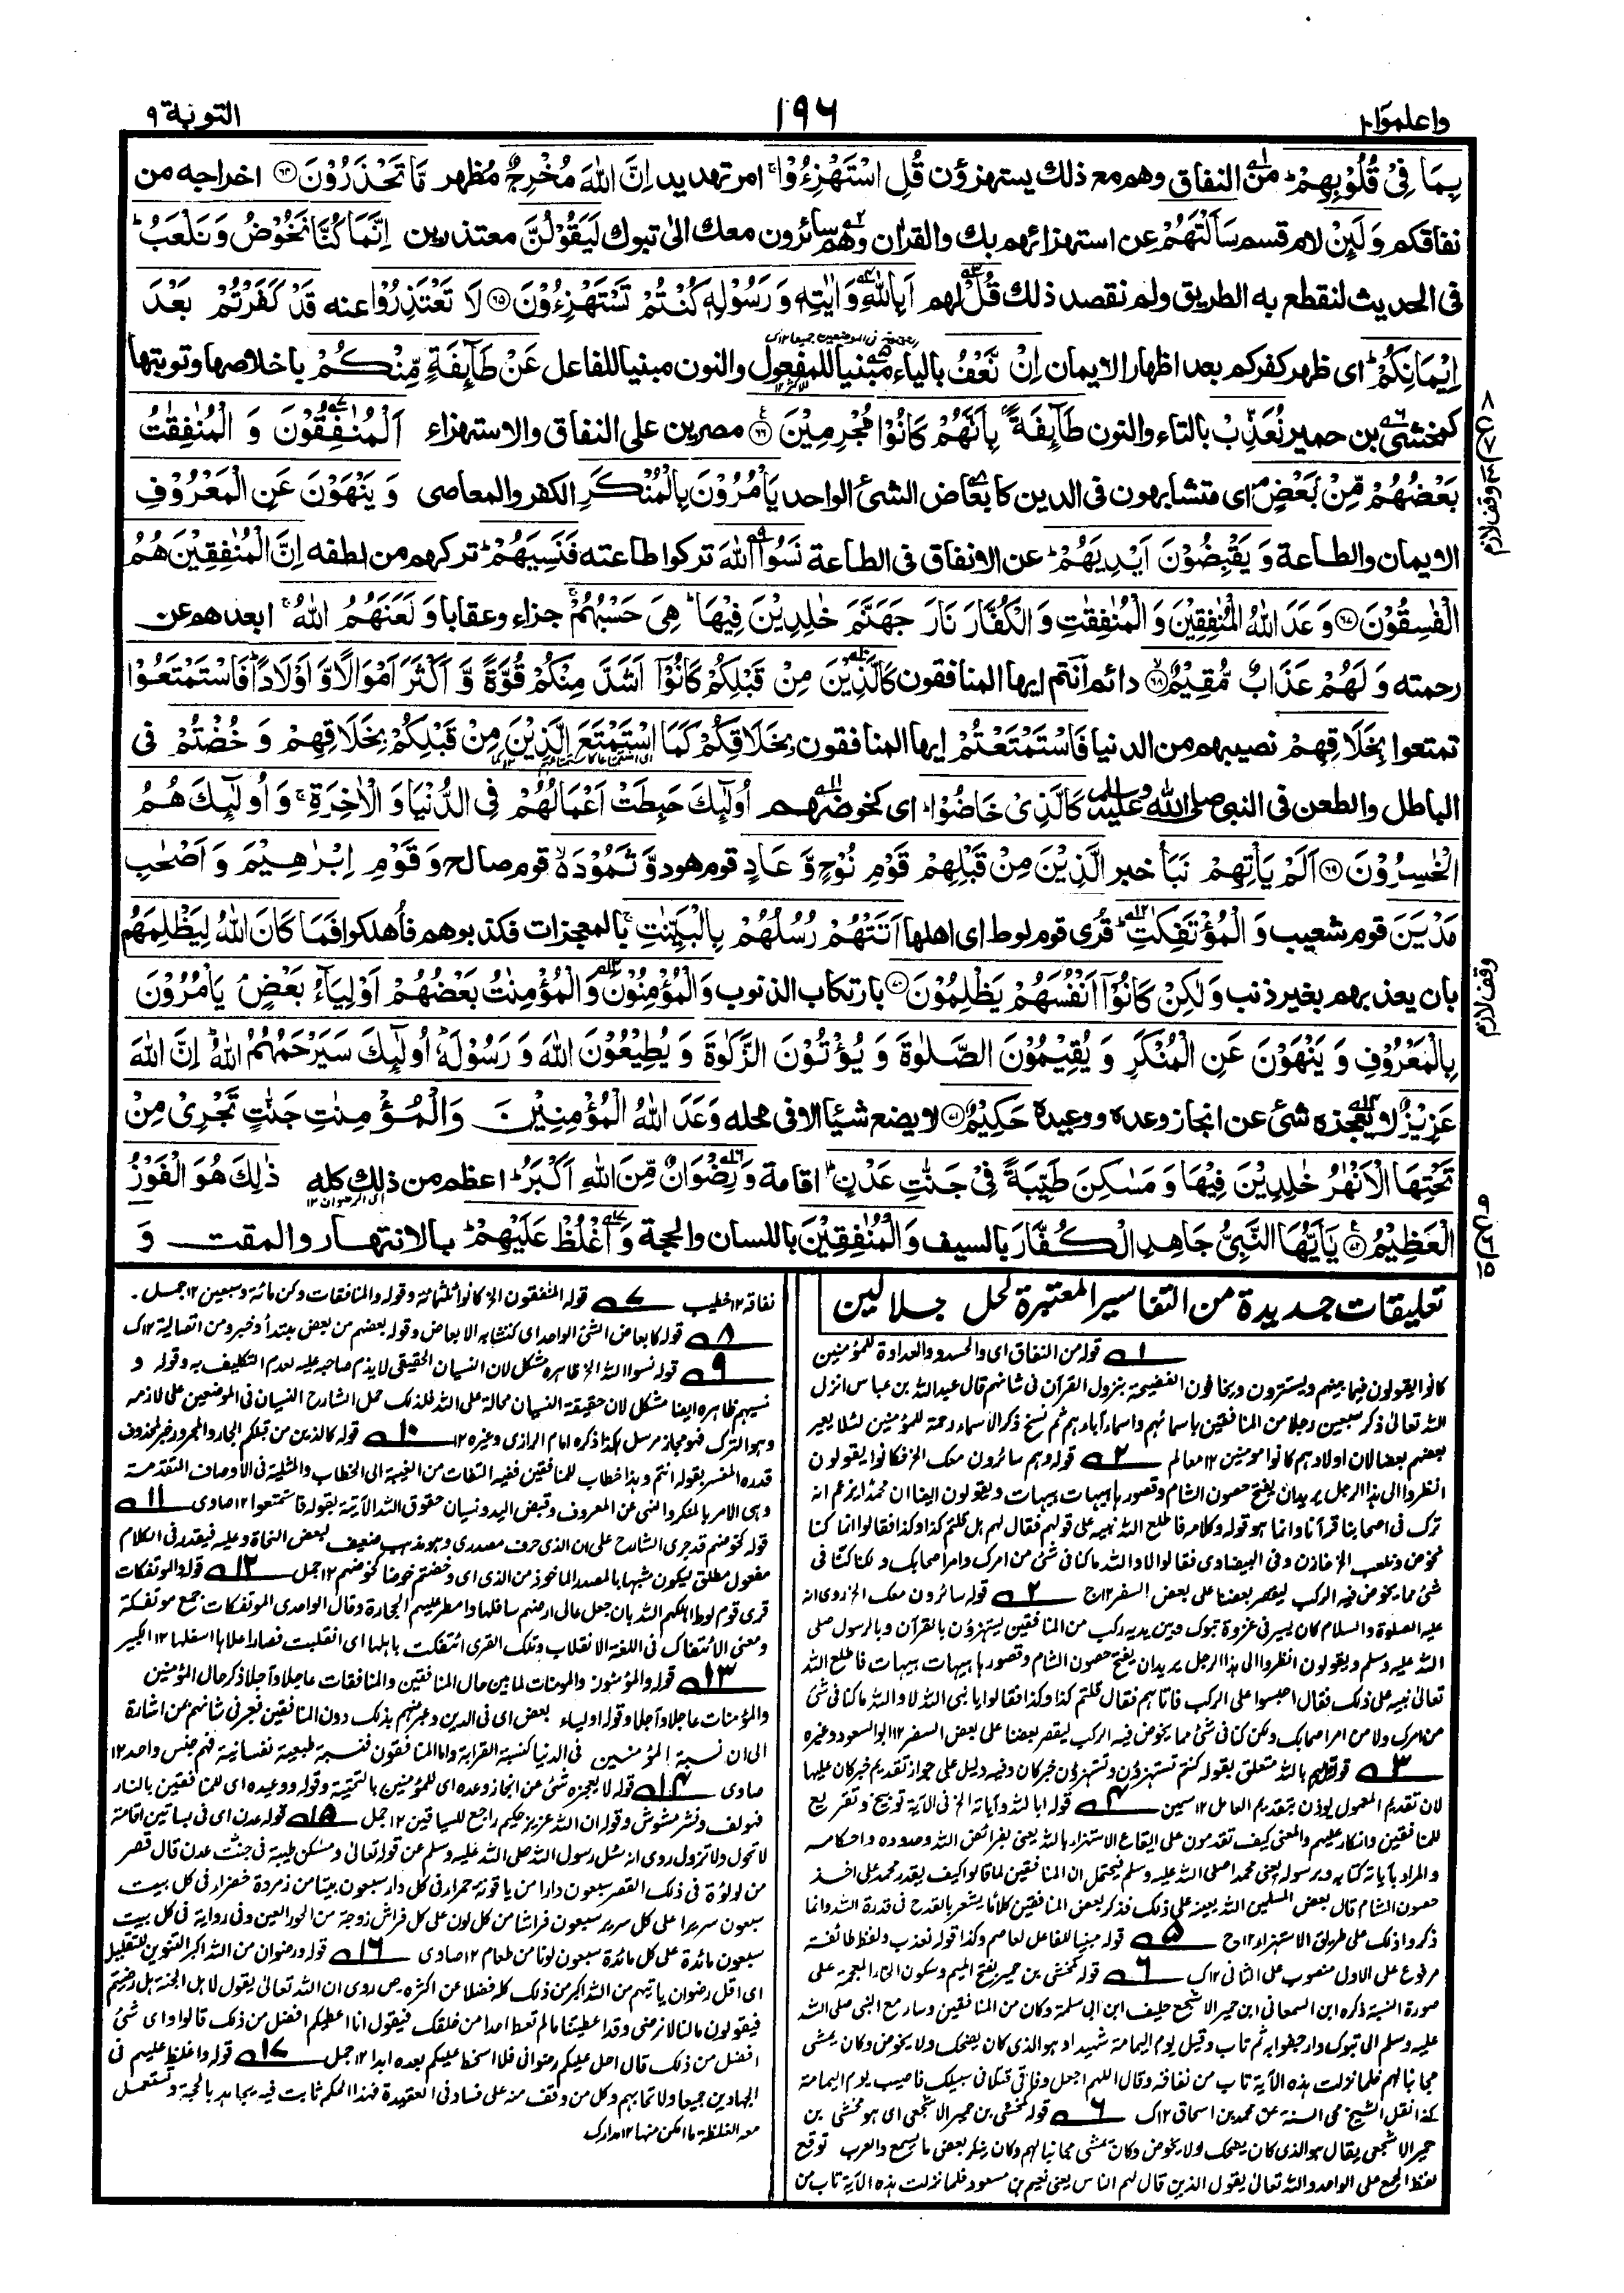 واعلموا ١٠
١٩٦
التوبة ٩
بِمَا فِيْ قُلُوْبِهِمْ ؕ من النفاق وهم مع ذلك يستهزؤن قُلِ اسْتَهْزِءُوْا ۚ امر تهديد اِنَّ اللّٰهَ مُخْرِجٌ مظهر مَّا تَحْذَرُوْنَ ۝٦٤ اخراجه من
نفاقكم وَلَئِنْ لام قسم سَاَلْتَهُمْ عن استهزائهم بك والقران وهم سائرون معك الى تبوك لَيَقُوْلُنَّ معتذرين اِنَّمَا كُنَّا نَخُوْضُ وَنَلْعَبُ ؕ
فى الحديث لنقطع به الطريق ولم نقصد ذلك قُلْ لهم اَبِاللّٰهِ وَاٰيٰتِهٖ وَرَسُوْلِهٖ كُنْتُمْ تَسْتَهْزِءُوْنَ ۝٦٥ لَا تَعْتَذِرُوْا عنه قَدْ كَفَرْتُمْ بَعْدَ
اِيْمَانِكُمْ ؕ اى ظهر كفركم بعد اظهار الايمان اِنْ نَّعْفُ بالياء مبنيا للمفعول والنون مبنيا للفاعل عَنْ طَآئِفَةٍ مِّنْكُمْ باخلاصها وتوبتها
كمخشى بن حمير نُعَذِّبْ بالتاء والنون طَآئِفَةًۢ بِاَنَّهُمْ كَانُوْا مُجْرِمِيْنَ ۝٦٦ مصرين على النفاق والاستهزاء اَلْمُنٰفِقُوْنَ وَالْمُنٰفِقٰتُ
بَعْضُهُمْ مِّنْۢ بَعْضٍ ۘ اى متشابهون فى الدين كابعاض الشئ الواحد يَاْمُرُوْنَ بِالْمُنْكَرِ الكفر والمعاصى وَيَنْهَوْنَ عَنِ الْمَعْرُوْفِ
الايمان والطاعة وَيَقْبِضُوْنَ اَيْدِيَهُمْ ؕ عن الانفاق فى الطاعة نَسُوا اللّٰهَ تركوا طاعته فَنَسِيَهُمْ ؕ تركهم من لطفه اِنَّ الْمُنٰفِقِيْنَ هُمُ
الْفٰسِقُوْنَ ۝٦٧ وَعَدَ اللّٰهُ الْمُنٰفِقِيْنَ وَالْمُنٰفِقٰتِ وَالْكُفَّارَ نَارَ جَهَنَّمَ خٰلِدِيْنَ فِيْهَا ؕ هِيَ حَسْبُهُمْ ۚ جزاء وعقابا وَلَعَنَهُمُ اللّٰهُ ۚ ابعدهم عن
رحمته وَلَهُمْ عَذَابٌ مُّقِيْمٌ ۝٦٨ دائم انتم ايها المنافقون كَالَّذِيْنَ مِنْ قَبْلِكُمْ كَانُوْٓا اَشَدَّ مِنْكُمْ قُوَّةً وَّاَكْثَرَ اَمْوَالًا وَّاَوْلَادًا ؕ فَاسْتَمْتَعُوْا
تمتعوا بِخَلَاقِهِمْ نصيبهم من الدنيا فَاسْتَمْتَعْتُمْ ايها المنافقون بِخَلَاقِكُمْ كَمَا اسْتَمْتَعَ الَّذِيْنَ مِنْ قَبْلِكُمْ بِخَلَاقِهِمْ وَخُضْتُمْ فى
الباطل والطعن فى النبى صلى الله عليه وسلم كَالَّذِيْ خَاضُوْا ؕ اى كخوضهم اُولٰٓئِكَ حَبِطَتْ اَعْمَالُهُمْ فِى الدُّنْيَا وَالْاٰخِرَةِ ۚ وَاُولٰٓئِكَ هُمُ
الْخٰسِرُوْنَ ۝٦٩ اَلَمْ يَاْتِهِمْ نَبَاُ خبر الَّذِيْنَ مِنْ قَبْلِهِمْ قَوْمِ نُوْحٍ وَّعَادٍ قوم هود وَّثَمُوْدَ ۙ قوم صالح وَقَوْمِ اِبْرٰهِيْمَ وَاَصْحٰبِ
مَدْيَنَ قوم شعيب وَالْمُؤْتَفِكٰتِ ؕ قرى قوم لوط اى اهلها اَتَتْهُمْ رُسُلُهُمْ بِالْبَيِّنٰتِ ۚ بالمعجزات فكذبوهم فأهلكوا فَمَا كَانَ اللّٰهُ لِيَظْلِمَهُمْ
بان يعذبهم بغير ذنب وَلٰكِنْ كَانُوْٓا اَنْفُسَهُمْ يَظْلِمُوْنَ ۝٧٠ بارتكاب الذنوب وَالْمُؤْمِنُوْنَ وَالْمُؤْمِنٰتُ بَعْضُهُمْ اَوْلِيَآءُ بَعْضٍ ۘ يَاْمُرُوْنَ
بِالْمَعْرُوْفِ وَيَنْهَوْنَ عَنِ الْمُنْكَرِ وَيُقِيْمُوْنَ الصَّلٰوةَ وَيُؤْتُوْنَ الزَّكٰوةَ وَيُطِيْعُوْنَ اللّٰهَ وَرَسُوْلَهٗ ؕ اُولٰٓئِكَ سَيَرْحَمُهُمُ اللّٰهُ ؕ اِنَّ اللّٰهَ
عَزِيْزٌ لا يعجزه شئ عن انجاز وعده ووعيده حَكِيْمٌ ۝٧١ لا يضع شيئا الا فى محله وَعَدَ اللّٰهُ الْمُؤْمِنِيْنَ وَالْمُؤْمِنٰتِ جَنّٰتٍ تَجْرِيْ مِنْ
تَحْتِهَا الْاَنْهٰرُ خٰلِدِيْنَ فِيْهَا وَمَسٰكِنَ طَيِّبَةً فِيْ جَنّٰتِ عَدْنٍ ؕ اقامة وَرِضْوَانٌ مِّنَ اللّٰهِ اَكْبَرُ ؕ اعظم من ذلك كله ذٰلِكَ هُوَ الْفَوْزُ
الْعَظِيْمُ ۝٧٢ يٰٓاَيُّهَا النَّبِيُّ جَاهِدِ الْكُفَّارَ بالسيف وَالْمُنٰفِقِيْنَ باللسان والحجة وَاغْلُظْ عَلَيْهِمْ ؕ بالانتهار والمقت وَ
وقف لازم
وقف لازم
تعليقات جديدة من التفاسير المعتبرة لحل جلالين
١ قوله من النفاق اى والحسد والعداوة للمؤمنين
كانوا يقولون فيما بينهم ويستترون ويخافون الفضيحة بنزول القرآن فى شانهم قال عبد الله بن عباس انزل
الله تعالى ذكر سبعين رجلا من المنافقين باسمائهم واسماء آباءهم ثم نسخ ذكر الاسماء رحمة للمؤمنين لئلا يعير
بعضهم بعضا لان اولادهم كانوا مومنين ١٢ معالم ٢ قوله وهم سائرون معك الخ فكانوا يقولون
انظروا الى هذا الرجل يريد ان يفتح حصون الشام وقصورها هيهات هيهات ويقولون ايضا ان محمدا يزعم انه
نزل فى اصحابنا قرآنا وانما هو قوله وكلامه فاطلع الله نبيه على قولهم فقال لهم هل قلتم كذا وكذا فقالوا انما كنا
نخوض ونلعب الخ خازن وفى البيضاوى فقالوا لا والله ما كنا فى شئ من امرك وامر اصحابك ولكنا كنا فى
شئ مما يخوض فيه الركب ليقصر بعضنا على بعض السفر ١٢ ج ٢ قوله سائرون معك الخ روى انه
عليه الصلوة والسلام كان يسير فى غزوة تبوك وبين يديه ركب من المنافقين يستهزؤن بالقرآن وبالرسول صلى
الله عليه وسلم ويقولون انظروا الى هذا الرجل يريد ان يفتح حصون الشام وقصورها هيهات هيهات فاطلع الله
تعالى نبيه على ذلك فقال احبسوا على الركب فاتاهم فقال قلتم كذا وكذا فقالوا يا نبى الله لا والله ما كنا فى شئ
من امرك ولا من امر اصحابك ولكن كنا فى شئ مما يخوض فيه الركب ليقصر بعضنا على بعض السفر ١٢ ابو السعود وغيره
٣ قوله قل لهم ابالله متعلق بقوله كنتم تستهزؤن وتستهزؤن خبر كان وفيه دليل على جواز تقديم خبر كان عليها
لان تقديم المعمول يوذن بتقديم العامل ١٢ سمين ٤ قوله ابالله وآياته الخ فى الآية توبيخ وتقريع
للمنافقين وانكار عليهم والمعنى كيف تقدمون على ايقاع الاستهزاء بالله يعنى بفرائض الله وحدوده واحكامه
والمراد بآياته كتابه وبرسوله يعنى محمدا صلى الله عليه وسلم فيحتمل ان المنافقين لما قالوا كيف يقدر محمد على اخذ
حصون الشام قال بعض المسلمين الله يعينه على ذلك فذكر بعض المنافقين كلاما يشعر بالقدح فى قدرة الله وانما
ذكروا ذلك على طريق الاستهزاء ١٢ ح ٥ قوله مبنيا للفاعل لعاصم وكذا قوله نعذب ولفظ طائفة
مرفوع على الاول منصوب على الثانى ١٢ ك ٦ قوله كمخشى بن حمير بفتح الميم وسكون الخاء المعجمة على
صورة النسبة ذكره ابن السمعانى ابن حمير الاشجع حليف ابن ابى سلمة وكان من المنافقين وسار مع النبى صلى الله
عليه وسلم الى تبوك وارجفوا به ثم تاب وقيل يوم اليمامة شهيدا وهو الذى كان يضحك ولا يخوض وكان يمشى
مجانبا لهم فلما نزلت هذه الآية تاب من نفاقه وقال اللهم اجعل وفاتى قتلا فى سبيلك فاصيب يوم اليمامة
كذا نقل الشيخ محى السنة عن محمد بن اسحاق ١٢ ك ٦ قوله كمخشى بن حمير الاشجعى اى هو مخشى بن
حمير الاشجعى يقال هو الذى كان يضحك ولا يخوض وكان يمشى مجانبا لهم وكان ينكر بعض ما يسمع والعرب توقع
لفظ الجمع على الواحد والله تعالى يقول الذين قال لهم الناس يعنى نعيم بن مسعود فلما نزلت هذه الآية تاب من
نفاقه ١٢ خطيب ٧ قوله المنفقون الخ كانوا ثلثمائة وقوله والمنافقات وكن مائة وسبعين ١٢ جمل ۔
٨ قوله كابعاض الشئ الواحد اى كتشابه الابعاض وقوله بعضهم من بعض مبتدأ وخبر ومن اتصالية ١٢ ك
٩ قوله نسوا الله الخ ظاهره مشكل لان النسيان الحقيقى لا يذم صاحبه عليه لعدم التكليف به وقوله و
نسيهم ظاهره ايضا مشكل لان حقيقة النسيان محالة على الله فلذلك حمل الشارح النسيان فى الموضعين على لازمه
وهو الترك فهو مجاز مرسل هكذا ذكره امام الرازى وغيره ١٢ ١٠ قوله كالذين من قبلكم الجار والمجرور خبر لمحذوف
قدره المفسر بقوله انتم وهذا خطاب للمنافقين ففيه التفات من الغيبة الى الخطاب والمثلية فى الأوصاف المتقدمة
وهى الامر بالمنكر والنهى عن المعروف وقبض اليد ونسيان حقوق الله الآتية بقوله فاستمتعوا ١٢ صاوى ١١
قوله كخوضهم قد جرى الشارح على ان الذى حرف مصدرى وهو مذهب ضعيف لبعض النحاة وعليه فيقدر فى الكلام
مفعول مطلق ليكون مشبها بالمصدر الماخوذ من الذى اى وخضتم خوضا كخوضهم ١٢ جمل ١٢ قوله والموتفكات
قرى قوم لوط اهلكهم الله بان جعل عالى ارضهم سافلها وامطر عليهم الحجارة وقال الواحدى الموتفكات جمع موتفكة
ومعنى الائتفاك فى اللغة الانقلاب وتلك القرى ائتفكت باهلها اى انقلبت فصار اعلاها اسفلها ١٢ الكبير
١٣ قوله والمؤمنون والمومنات لما بين حال المنافقين والمنافقات عاجلا وآجلا ذكر حال المؤمنين
والمؤمنات عاجلا وآجلا وقوله اولياء بعض اى فى الدين وعبر عنهم بذلك دون المنافقين فعبر فى شانهم من اشارة
الى ان نسبة المؤمنين فى الدنيا كنسبة القرابة واما المنافقون فنسبة طبيعية نفسانية فهم جنس واحد ١٢
صاوى ١٤ قوله لا يعجزه شئ عن انجاز وعده اى للمؤمنين بالتحتية وقوله ووعيده اى للمنافقين بالنار
فهو لف ونشر مشوش وقوله ان الله عزيز حكيم راجع للسياقين ١٢ جمل ١٥ قوله عدن اى فى بساتين اقامة
لا تحول ولا تزول روى انه سئل رسول الله صلى الله عليه وسلم عن قوله تعالى ومسكن طيبة فى جنّت عدن قال قصر
من لؤلؤة فى ذلك القصر سبعون دارا من ياقوتة حمراء فى كل دار سبعون بيتا من زمردة خضراء فى كل بيت
سبعون سريرا على كل سرير سبعون فراشا من كل لون على كل فراش زوجة من الحور العين وفى رواية فى كل بيت
سبعون مائدة على كل مائدة سبعون لونا من طعام ١٢ صاوى ١٦ قوله ورضوان من الله اكبر التنوين للتقليل
اى اقل رضوان ياتيهم من الله اكبر من ذلك كله فضلا عن اكثره ص روى ان الله تعالى يقول لاهل الجنة هل رضيتم
فيقولون ما لنا لا نرضى وقد اعطيتنا ما لم تعط احدا من خلقك فيقول انا اعطيكم افضل من ذلك قالوا واى شئ
افضل من ذلك قال احل عليكم رضوانى فلا اسخط عليكم بعده ابدا ١٢ جمل ١٧ قوله واغلظ عليهم فى
الجهادين جميعا ولا تحابهم وكل من وقف منه على فساد فى العقيدة فهذا الحكم ثابت فيه يجاهد بالحجة وتستعمل
معه الغلظة ما امكن منها ١٢ مدارك